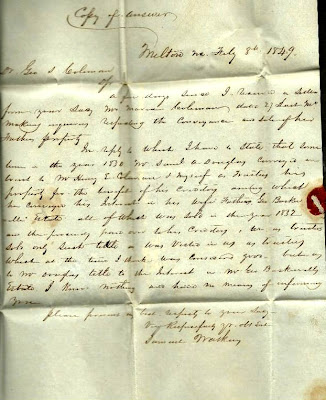 Copy of Answer
Milton NC Feby 8th 1849.
Dr. Geo S. Coleman
A few days since I received a letter
from your Lady Mrs Maria Coleman dated 27 Inst
making inquiries regarding the Conveyance and sale of her
Fathers property
In reply to which I have to State that some
time in the year 1830 Mr Saml A Douglas Convey in a
to Mr Henry E. Coleman & Myself as Trustees his
property for the benefit of his Creditors among which
he conveys his Interest in his Wife Fathers Geo
Estate all of which was sold in the year 1832
and the proceeds paid over to his Creditors. We as trustees
sold only such title as was Vested in us as trustees
which at the time I think was good. but as
to Mr Douglas title to the Interest in Mr Geo
Estate I know nothing and have no means of informing
you
Please present my best respects to your Lady
Very Respectfully yr. obt Svt
Samuel Watkins